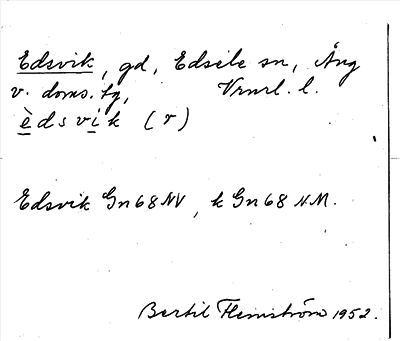 Edsvik, gd, Edsele sn, Ång
v. doms. tg, Vrnrl. l.
èdsvik (r)
Edsvik Gn68NV, k Gn68 N.M.
Bertil Flemström 1952.